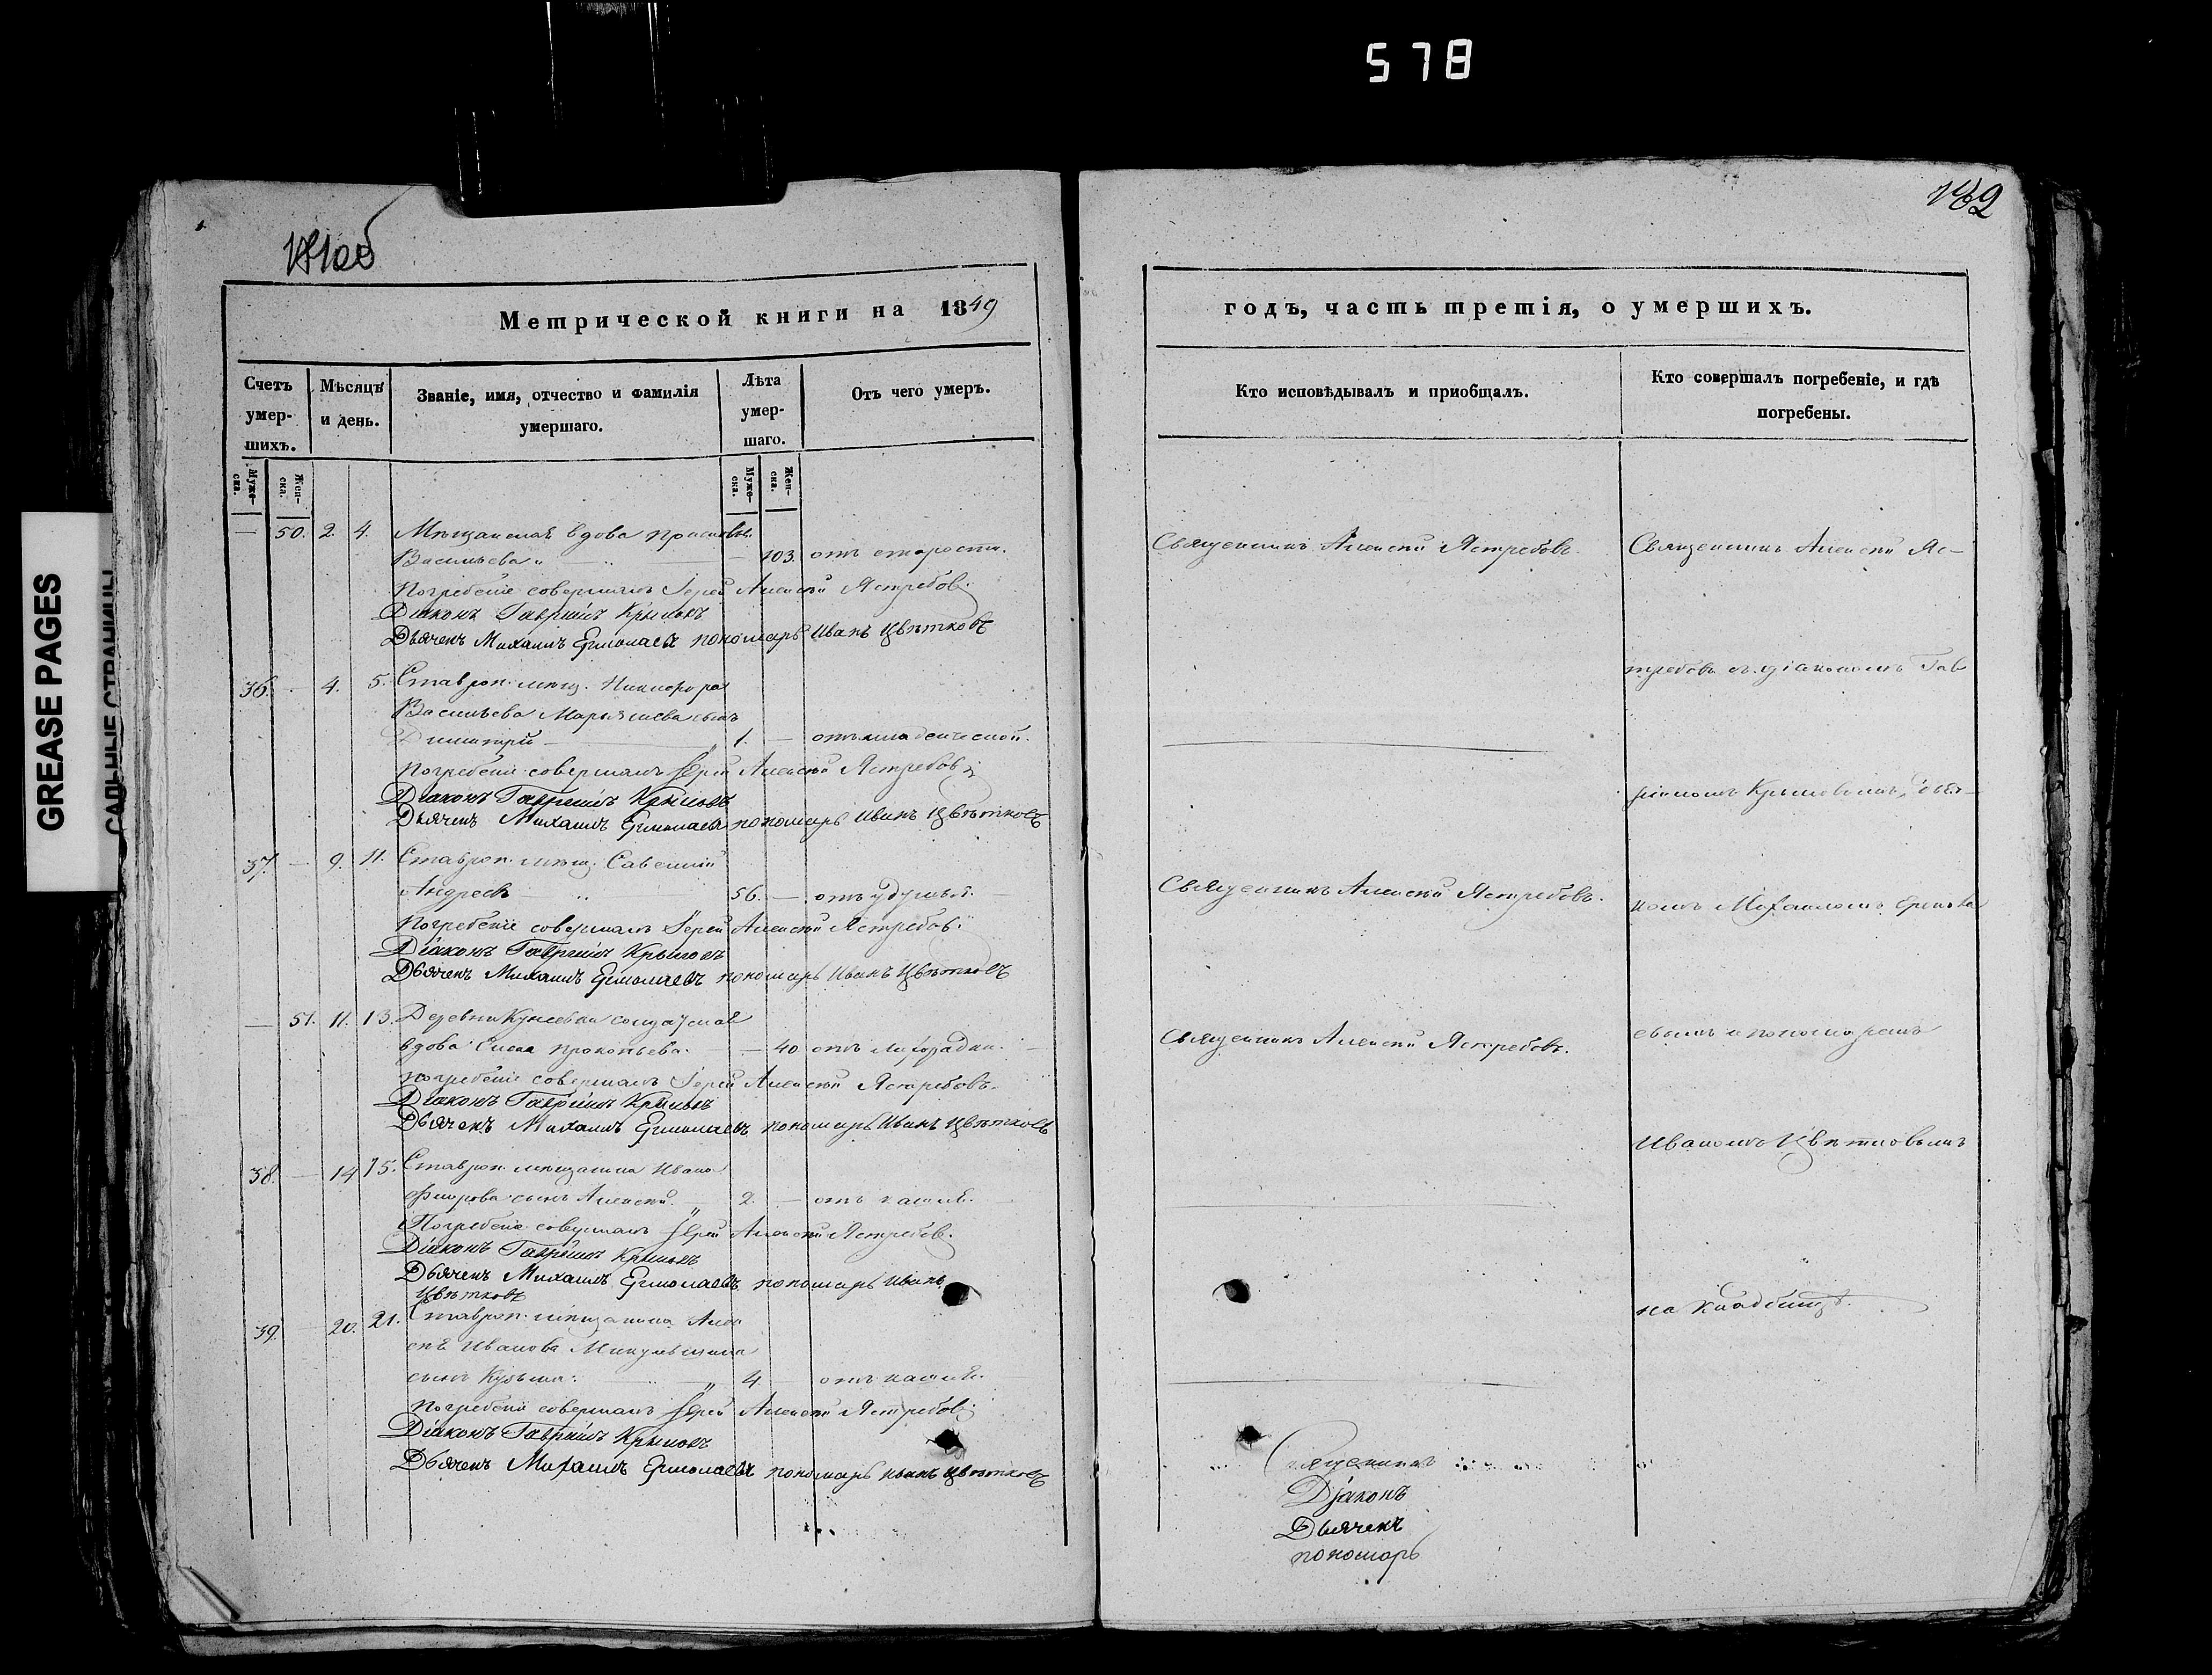 578
182
Метрической книги на 1849
годъ, часть третія, о умершихъ.
Счетъ умер-шихъ.
Мѣсяцъ и день.
Званіе, имя, отчество и фамилія умершаго.
Лѣта умер-шаго.
Отъ чего умеръ.
Кто исповѣдывалъ и приобщалъ.
Кто совершалъ погребеніе, и гдѣ погребены.
Муже-ска.
Жен-ска.
Муже-ска.
Жен-ска.
50. 2. 4. Мѣщанская вдова Прасковья
Васильева 103. отъ старости.
Погребеніе совершалъ Іерей Алексѣй Ястребовъ
Діаконъ Гавріилъ Крыловъ
Дьячекъ Михаилъ Ермолаевъ пономарь Иванъ Цвѣтковъ
36. 4. 5. Ставроп. мѣщ. Никифора
Васильева сынъ
Димитрій 1. отъ младенческой.
Погребеніе совершалъ Іерей Алексѣй Ястребовъ
Діаконъ Гавріилъ Крыловъ
Дьячекъ Михаилъ Ермолаевъ пономарь Иванъ Цвѣтковъ
37. 9. 11. Ставроп. мѣщ. Савелий
Андреевъ 56. отъ удушья.
Погребеніе совершалъ Іерей Алексѣй Ястребовъ
Діаконъ Гавріилъ Крыловъ
Дьячекъ Михаилъ Ермолаевъ пономарь Иванъ Цвѣтковъ
51. 11. 13. Деревни Кунеевки солдатская
вдова Елена Прокопьева. 40. отъ лихорадки.
Погребеніе совершалъ Іерей Алексѣй Ястребовъ.
Діаконъ Гавріилъ Крыловъ
Дьячекъ Михаилъ Ермолаевъ пономарь Иванъ Цвѣтковъ
38. 14 15. Ставроп. мѣщанина Ивана
сынъ Алексѣй. 2. отъ кашля.
Погребеніе совершалъ Іерей Алексѣй Ястребовъ.
Діаконъ Гавріилъ Крыловъ
Дьячекъ Михаилъ Ермолаевъ пономарь Иванъ
Цвѣтковъ
39. 20. 21. Ставроп. мѣщанина Алек
сѣя Иванова Микулшина
сынъ Кузьма. 4. отъ кашля.
Погребеніе совершалъ Іерей Алексѣй Ястребовъ
Діаконъ Гавріилъ Крыловъ
Дьячекъ Михаилъ Ермолаевъ пономарь Иванъ Цвѣтковъ
Священникъ Алексѣй Ястребовъ.
Священникъ Алексѣй Ястребовъ.
Священникъ Алексѣй Ястребовъ.
Священникъ Алексѣй Яс-
требовъ съ діакономъ Гав
ріиломъ Крыловымъ, дья-
комъ Михаиломъ Ермола
евымъ и пономаремъ
Иваномъ Цвѣтковымъ
на кладбищѣ.
Священникъ
Діаконъ
Дьячекъ
пономарь
GREASE PAGES